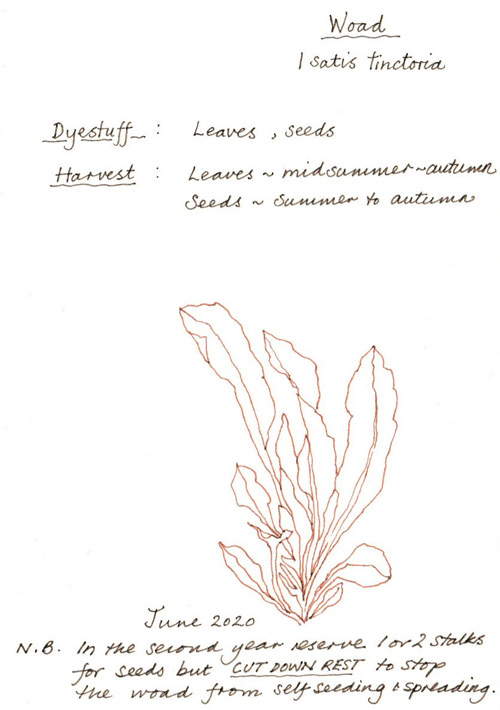 Woad
Isatis tinctoria
Dyestuff : Leaves, seeds
Harvest : Leaves ~ midsummer ~ autumn
Seeds ~ summer to autumn
June 2020
N.B. In the second year reserve 1 or 2 stalks
for seeds but CUT DOWN REST to stop
the woad from self seeding & spreading.